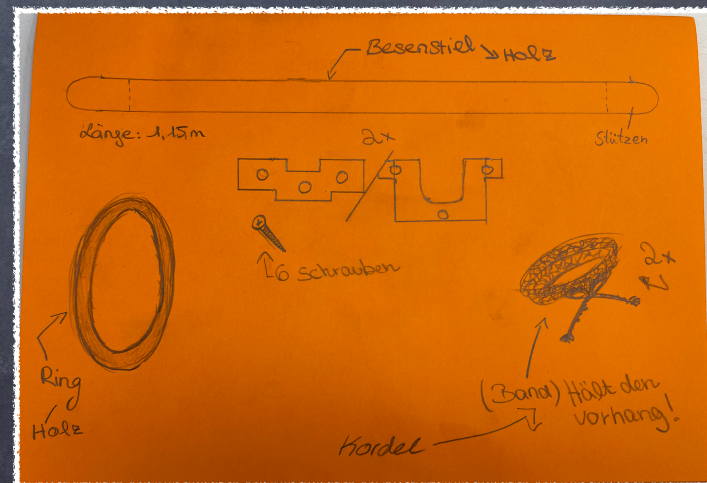 Besenstiel → Holz
Länge: 1,15m
2x
Stützen
6 Schrauben
2x
Ring
Holz
(Band) Hält den
vorhang!
Kordel